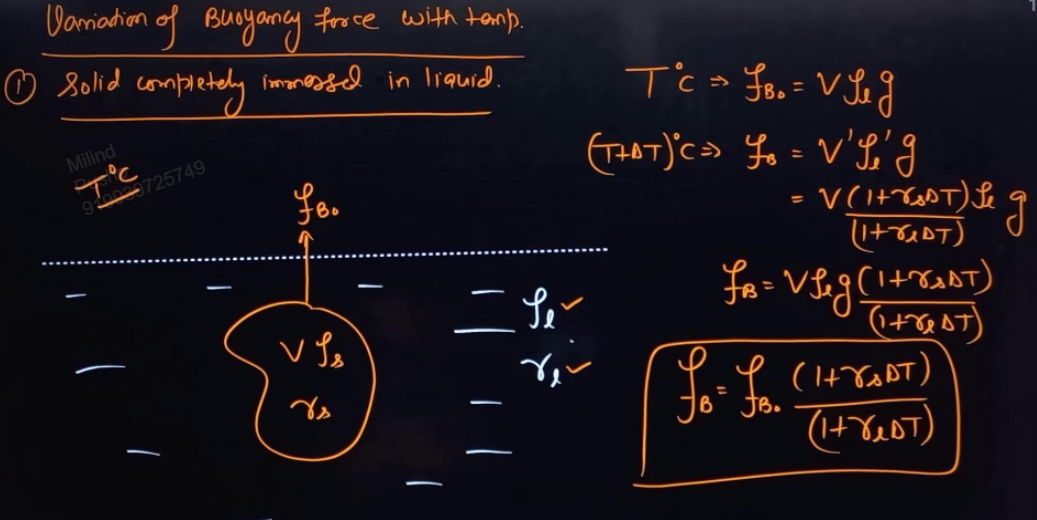 Variation of Buoyancy force with temp.
① Solid completely immersed in liquid.
T°C
f_B₀
V ρ_s
γ_s
ρ_l ✓
γ_l ✓
T°C ⇒ f_B₀ = V ρ_l g
(T+ΔT)°C ⇒ f_B = V' ρ_l' g
= V (1+γ_sΔT) ρ_l g / (1+γ_lΔT)
f_B = V ρ_l g (1+γ_sΔT) / (1+γ_lΔT)
f_B = f_B₀ (1+γ_sΔT) / (1+γ_lΔT)
Milind
725749
1